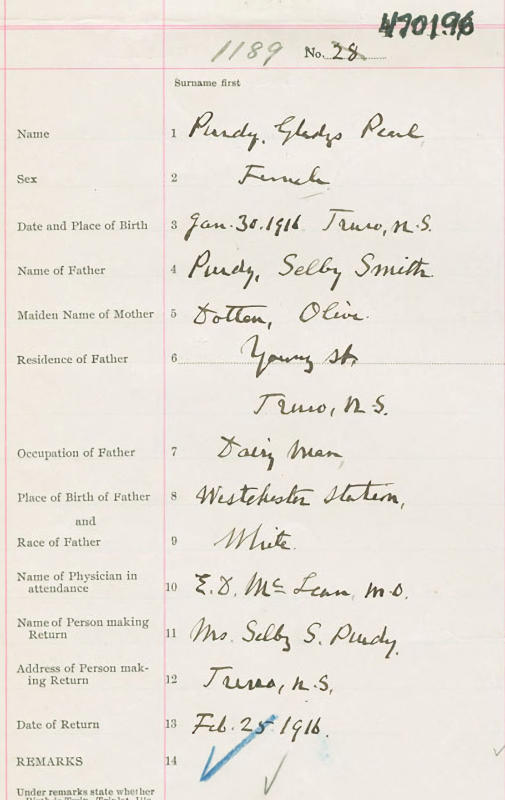 470196
1189 No. 28
Surname first
Name 1 Purdy, Gladys Pearl
Sex 2 Female
Date and Place of Birth 3 Jan. 30. 1916 Truro, N.S.
Name of Father 4 Purdy, Selby Smith
Maiden Name of Mother 5 Dotten, Olive.
Residence of Father 6 Young St.
Truro, N.S.
Occupation of Father 7 Dairy Man
Place of Birth of Father 8 Westchester Station,
and
Race of Father 9 White.
Name of Physician in
attendance 10 E.D. McLean, M.D.
Name of Person making
Return 11 Mrs. Selby S. Purdy.
Address of Person mak-
ing Return 12 Truro, N.S.
Date of Return 13 Feb. 25 1916.
REMARKS 14
Under remarks state whether